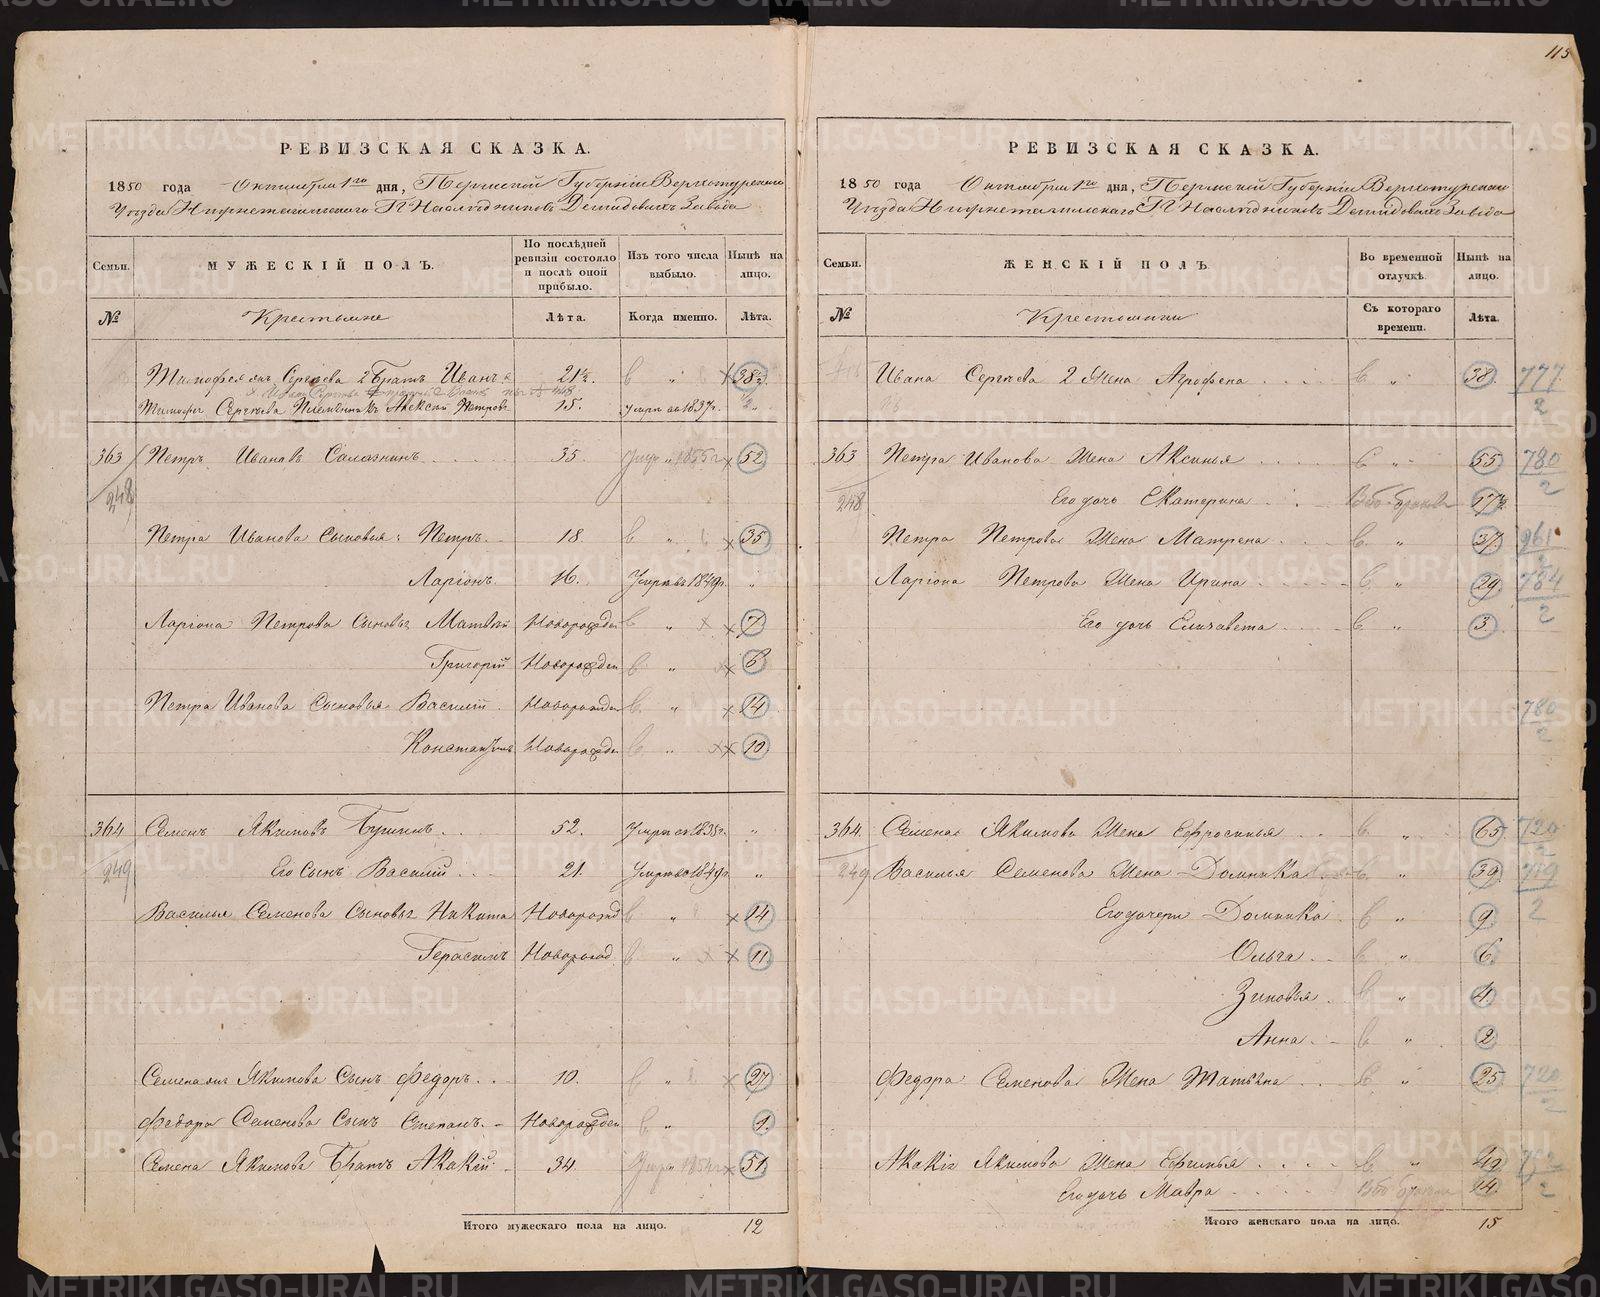 115
РЕВИЗСКАЯ СКАЗКА.
1850 года Октября 1го дня, Пермской Губерніи Верхотурскаго
Уѣзда Нижнетагильскаго Гг Наслѣдниковъ Демидовыхъ Завода
Семьи. МУЖЕСКІЙ ПОЛЪ. По послѣдней ревизіи состояло и послѣ оной прибыло. Изъ того числа выбыло. Нынѣ на лицо.
№ Крестьяне Лѣта. Когда именно. Лѣта.
Сергѣева 2 Братъ Иванъ 21½. 38½
Тимофея Сергѣева Племянникъ Алексѣй Петровъ 15. умре въ 1837г. "
363 Петръ Ивановъ 35. Умр. 1855г 52
248
Петра Иванова Сыновья: Петръ 18. " 35
Ларіонъ. 16. Умре въ 1849г. "
Ларіона Петрова Сыновья Матвѣй Новорожден " 7
Григорій Новорожден " 6
Петра Иванова Сыновья Василій Новорожден " 14
Константинъ Новорожден " 10
364 Семенъ Якимовъ 52. Умре въ 1835г. "
249 Его Сынъ Василій 21. Умре въ 1849г "
Василья Семенова Сыновья Никита Новорожд " 14
Герасимъ Новорожд " 11
Семена Якимова Сынъ Федоръ 10. " 27
Федора Семенова Сынъ Степанъ Новорожден " 1.
Семена Якимова Братъ Акакій 34. Умре 1854г 51
Итого мужескаго пола на лицо. 12
РЕВИЗСКАЯ СКАЗКА.
1850 года Октября 1го дня, Пермской Губерніи Верхотурскаго
Уѣзда Нижнетагильскаго Гг Наслѣдниковъ Демидовыхъ Завода
Семьи. ЖЕНСКІЙ ПОЛЪ. Во временной отлучкѣ. Нынѣ на лицо.
№ Крестьянки Съ котораго времени. Лѣта.
Ивана Сергѣева 2 Жена Агрофена " 38 777/2
363 Петра Иванова Жена Аксинья " 55 780/2
248 Его дочь Екатерина 17½
Петра Петрова Жена Матрена " 37. 961
Ларіона Петрова Жена Ирина " 29 784/2
Его дочь Елизавета " 3
780/2
364. Семена Якимова Жена Ефросинья " 65 720/2
249 Василья Семенова Жена Домника " 39 719/2
Его дочери Домника " 9
Ольга " 6
Зиновья " 4
Анна " 2
Федора Семенова Жена Татьяна " 25 720/2
Акакія Якимова Жена Ефимья " 49
Его дочь Мавра 14
Итого женскаго пола на лицо. 15
METRIKI.GASO-URAL.RU